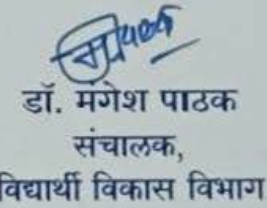 डॉ. मंगेश पाठक
संचालक,
विद्यार्थी विकास विभाग